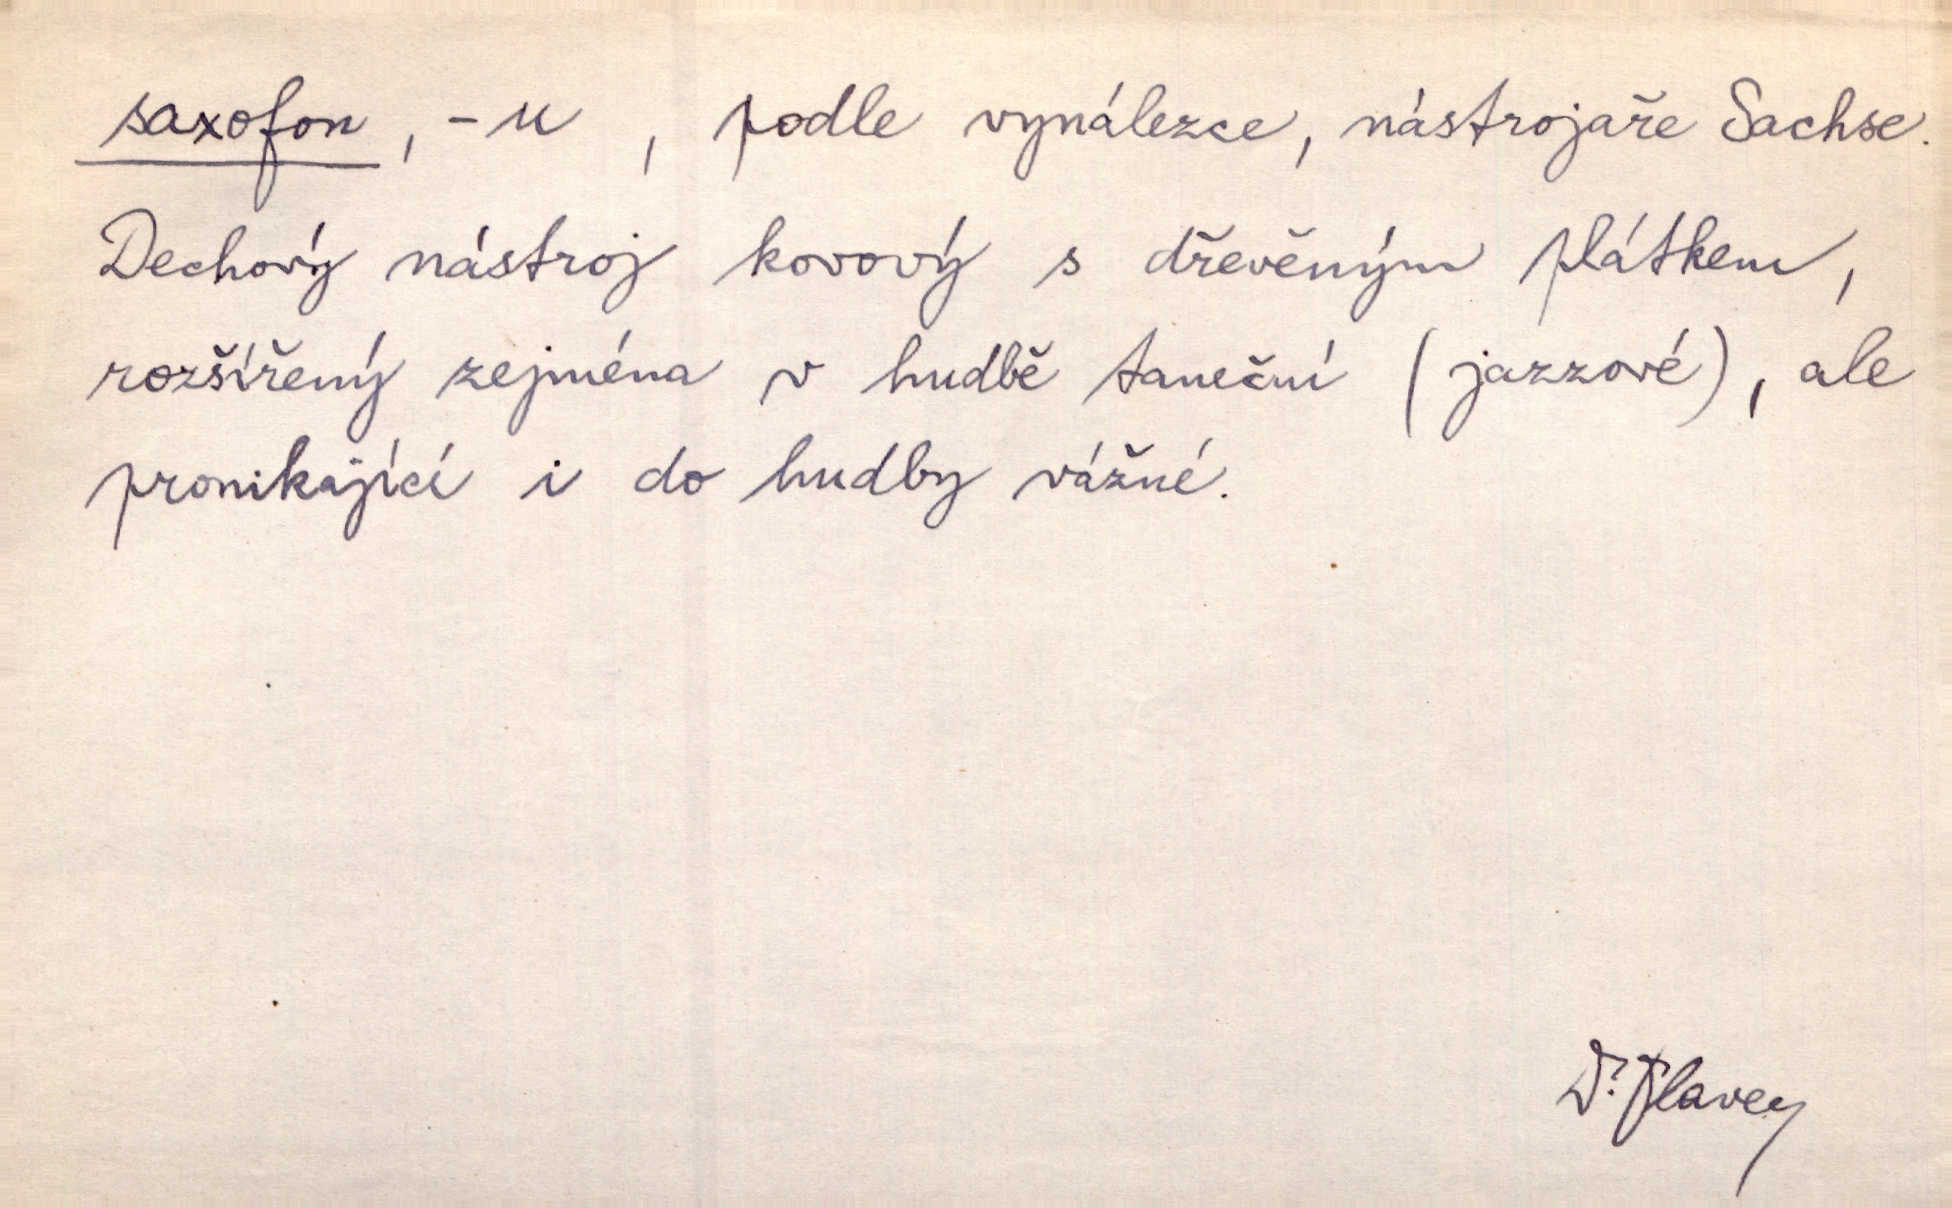 saxofon, -u , podle vynálezce, nástrojaře Sachse.
Dechový nástroj kovový s dřevěným plátkem,
rozšířený zejména v hudbě taneční (jazzové), ale
pronikající i do hudby vážné.
Dr.